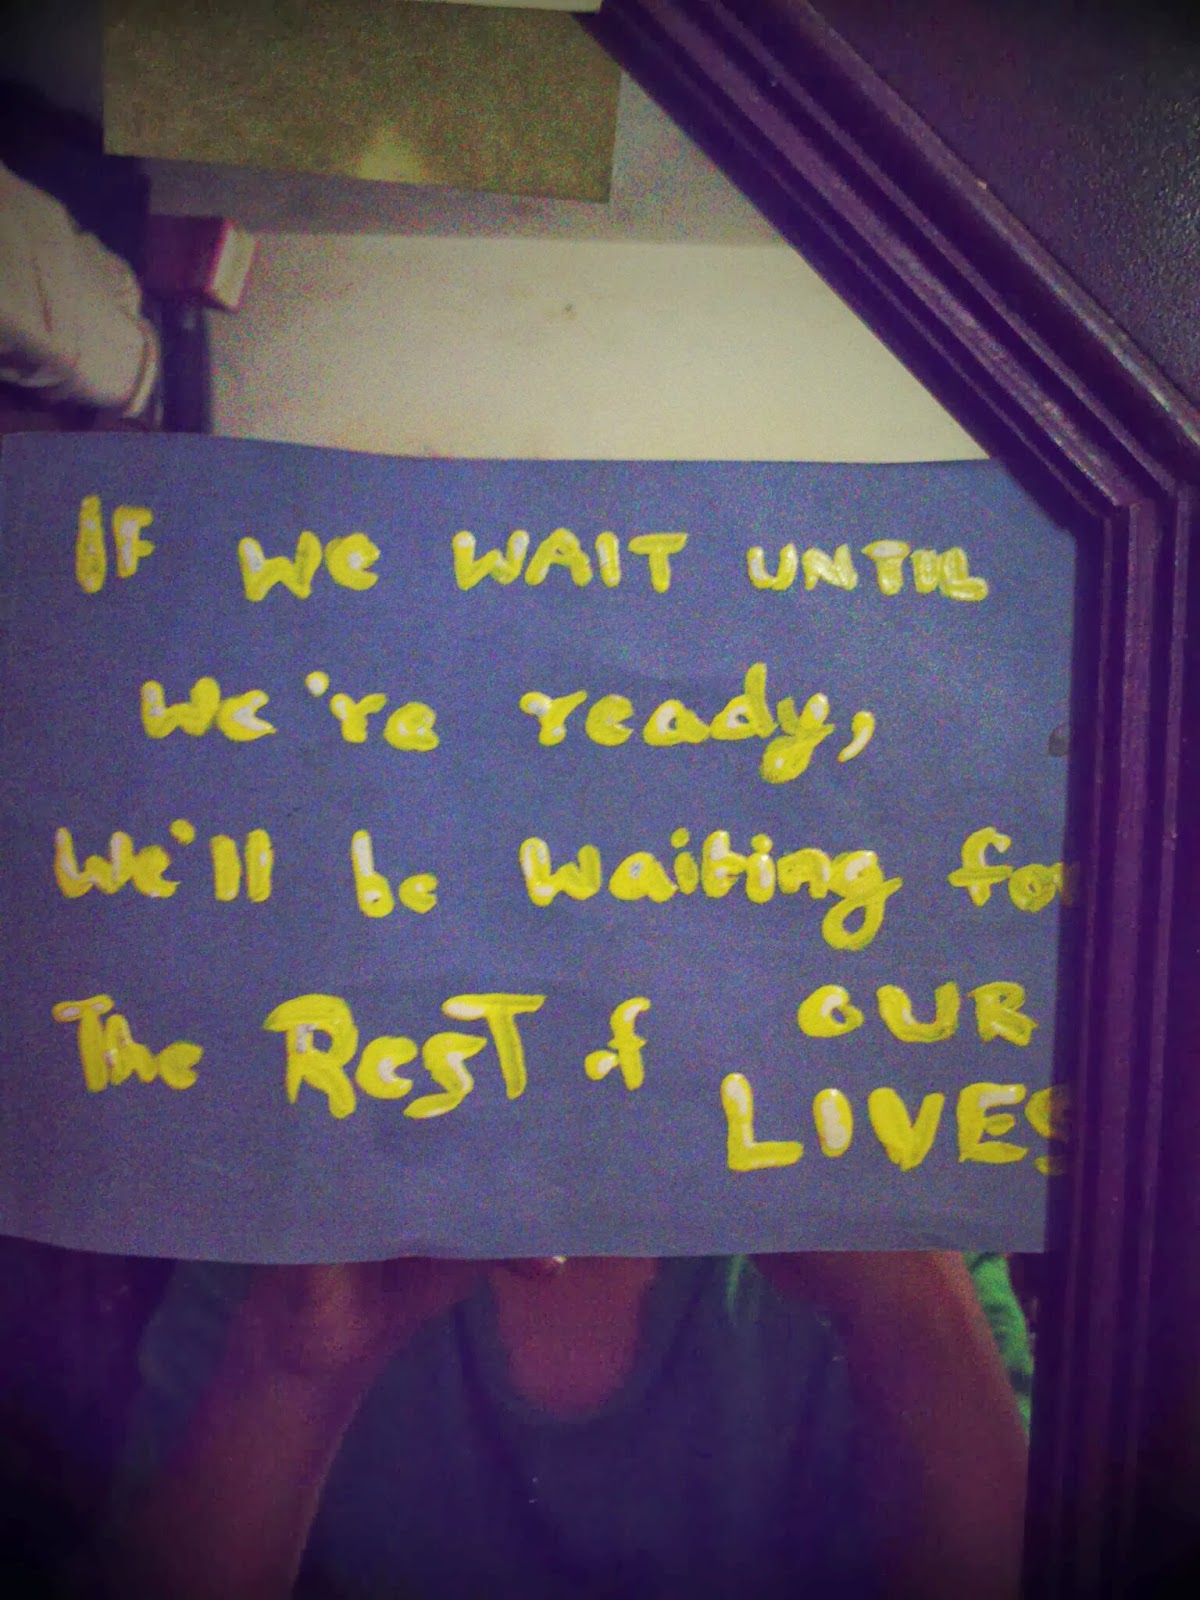 IF We WAIT UNTIL
We're ready,
We'll be waiting for
The ResT of OUR
LIVES